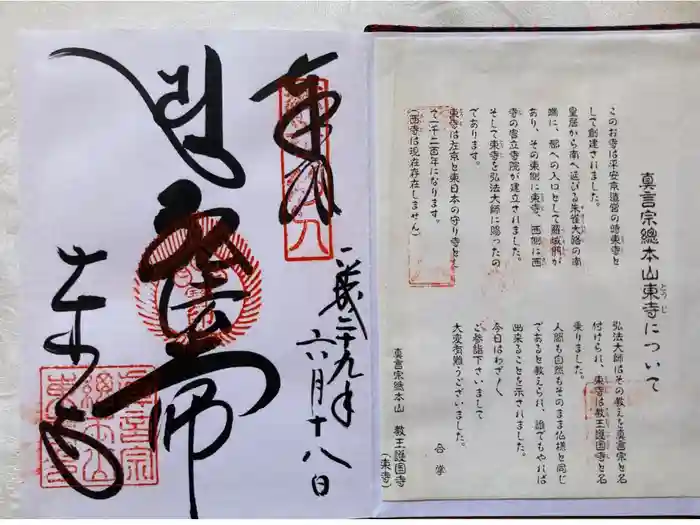 真言宗總本山東寺について
とうじ
このお寺は平安京造営の時東寺と
して創建されました。
皇居から南へ延びる朱雀大路の南
端に、都への入口として羅城門が
あり、その東側に東寺、西側に西
寺の官立寺院が建立されました。
そして東寺を弘法大師に賜ったの
であります。
東寺は左京と東日本の守り寺とし
て一千二百年になります。
(西寺は現在存在しません)
弘法大師はその教えを真言宗と名
付けられ、東寺は教王護国寺と名
乗りました。
人間も自然もそのまま仏様と同じ
であると教えられ、誰でもやれば
出来ることを示されました。
今日はわざ〱
ご参詣下さいまして
大変有難うございました。
合掌
真言宗總本山 教王護国寺
(東寺)
奉拝
平成二十九年
六月十八日
弘法大師
東寺
真言宗
總本山
東寺